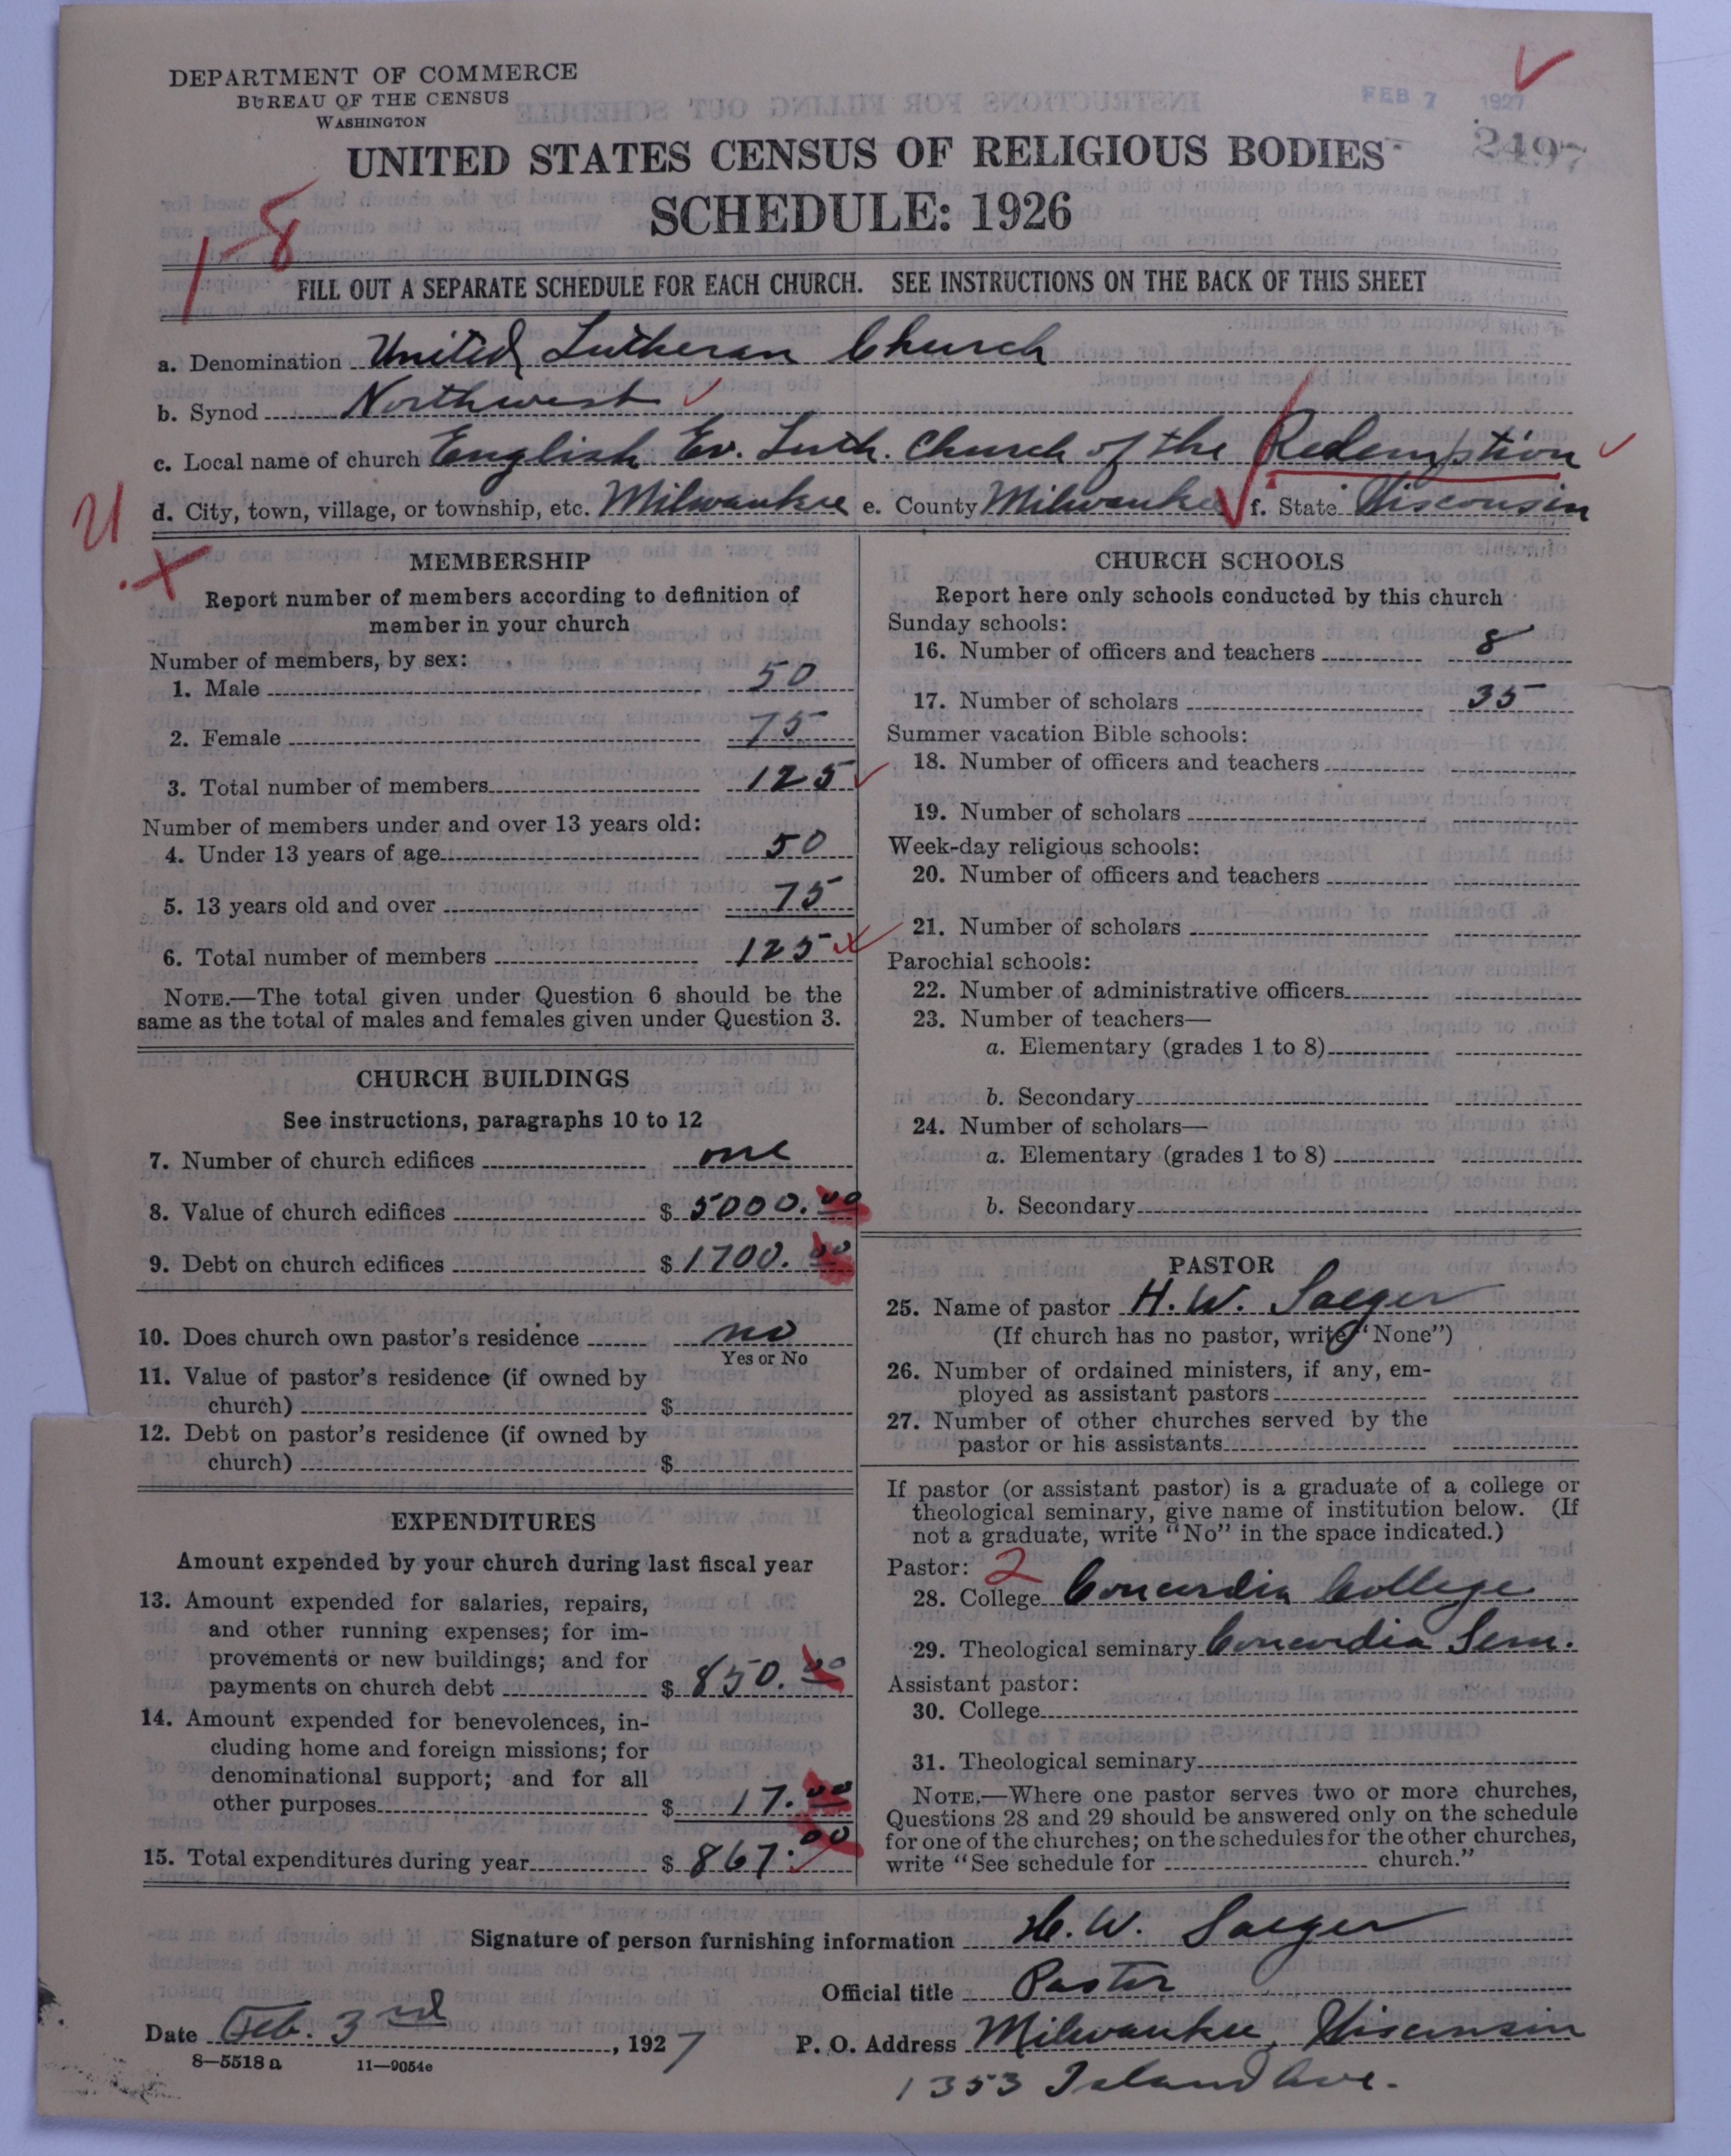 DEPARTMENT OF COMMERCE
BUREAU OF THE CENSUS
WASHINGTON
FEB 7 1927
2497
UNITED STATES CENSUS OF RELIGIOUS BODIES
SCHEDULE: 1926
1-8
FILL OUT A SEPARATE SCHEDULE FOR EACH CHURCH. SEE INSTRUCTIONS ON THE BACK OF THIS SHEET
a. Denomination United Lutheran Church
b. Synod Northwest
c. Local name of church English Ev. Luth. Church of the Redemption
d. City, town, village, or township, etc. Milwaukee e. County Milwaukee f. State Wisconsin
21
MEMBERSHIP
Report number of members according to definition of
member in your church
Number of members, by sex:
1. Male 50
2. Female 75
3. Total number of members 125
Number of members under and over 13 years old:
4. Under 13 years of age 50
5. 13 years old and over 75
6. Total number of members 125
NOTE.—The total given under Question 6 should be the
same as the total of males and females given under Question 3.
CHURCH BUILDINGS
See instructions, paragraphs 10 to 12
7. Number of church edifices one
8. Value of church edifices $ 5000.00
9. Debt on church edifices $ 1700.00
10. Does church own pastor's residence no
Yes or No
11. Value of pastor's residence (if owned by
church) $
12. Debt on pastor's residence (if owned by
church) $
EXPENDITURES
Amount expended by your church during last fiscal year
13. Amount expended for salaries, repairs,
and other running expenses; for im-
provements or new buildings; and for
payments on church debt $ 850.00
14. Amount expended for benevolences, in-
cluding home and foreign missions; for
denominational support; and for all
other purposes $ 17.00
15. Total expenditures during year $ 867.00
CHURCH SCHOOLS
Report here only schools conducted by this church
Sunday schools:
16. Number of officers and teachers 8
17. Number of scholars 35
Summer vacation Bible schools:
18. Number of officers and teachers
19. Number of scholars
Week-day religious schools:
20. Number of officers and teachers
21. Number of scholars
Parochial schools:
22. Number of administrative officers
23. Number of teachers—
a. Elementary (grades 1 to 8)
b. Secondary
24. Number of scholars—
a. Elementary (grades 1 to 8)
b. Secondary
PASTOR
25. Name of pastor H. W. Saeger
(If church has no pastor, write "None")
26. Number of ordained ministers, if any, em-
ployed as assistant pastors
27. Number of other churches served by the
pastor or his assistants
If pastor (or assistant pastor) is a graduate of a college or
theological seminary, give name of institution below. (If
not a graduate, write "No" in the space indicated.)
Pastor: 2
28. College Concordia College
29. Theological seminary Concordia Sem.
Assistant pastor:
30. College
31. Theological seminary
NOTE.—Where one pastor serves two or more churches,
Questions 28 and 29 should be answered only on the schedule
for one of the churches; on the schedules for the other churches,
write "See schedule for church."
Signature of person furnishing information H. W. Saeger
Official title Pastor
Date Feb. 3rd, 1927 P. O. Address Milwaukee, Wisconsin
8-5518 a 11-9054e
1353 Island Ave.